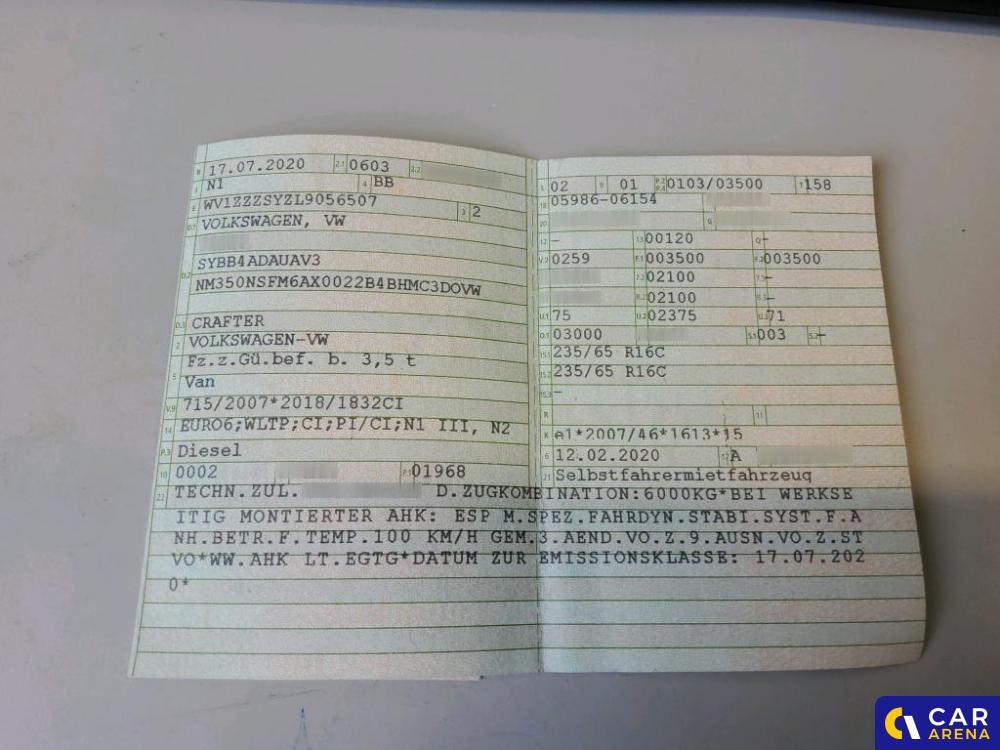 B 17.07.2020 2.1 0603 2.2
J N1 4 BB
E WV1ZZZSYZL9056507 3 2
D.1 VOLKSWAGEN, VW
D.2 SYBB4ADAUAV3
NM350NSFM6AX0022B4BHMC3DOVW
D.3 CRAFTER
2 VOLKSWAGEN-VW
5 Fz.z.Gü.bef. b. 3,5 t
Van
V.9 715/2007*2018/1832CI
14 EURO6;WLTP;CI;PI/CI;N1 III, N2
P.3 Diesel
10 0002 P.1 01968
L 02 9 01 P.2 P.4 0103/03500 T 158
18 05986-06154
20 G
12 – 13 00120 Q –
V.7 0259 F.1 003500 F.2 003500
7.2 02100 7.3 –
8.2 02100 8.3 –
U.1 75 U.2 02375 U.3 71
O.1 03000 S.1 003 S.2 –
15.1 235/65 R16C
15.2 235/65 R16C
15.3 –
R 11
K e1*2007/46*1613*15
6 12.02.2020 A
21 Selbstfahrermietfahrzeug
22 TECHN.ZUL. D.ZUGKOMBINATION:6000KG*BEI WERKSE
ITIG MONTIERTER AHK: ESP M.SPEZ.FAHRDYN.STABI.SYST.F.A
NH.BETR.F.TEMP.100 KM/H GEM.3.AEND.VO.Z.9.AUSN.VO.Z.ST
VO*WW.AHK LT.EGTG*DATUM ZUR EMISSIONSKLASSE: 17.07.202
0*
CAR
ARENA